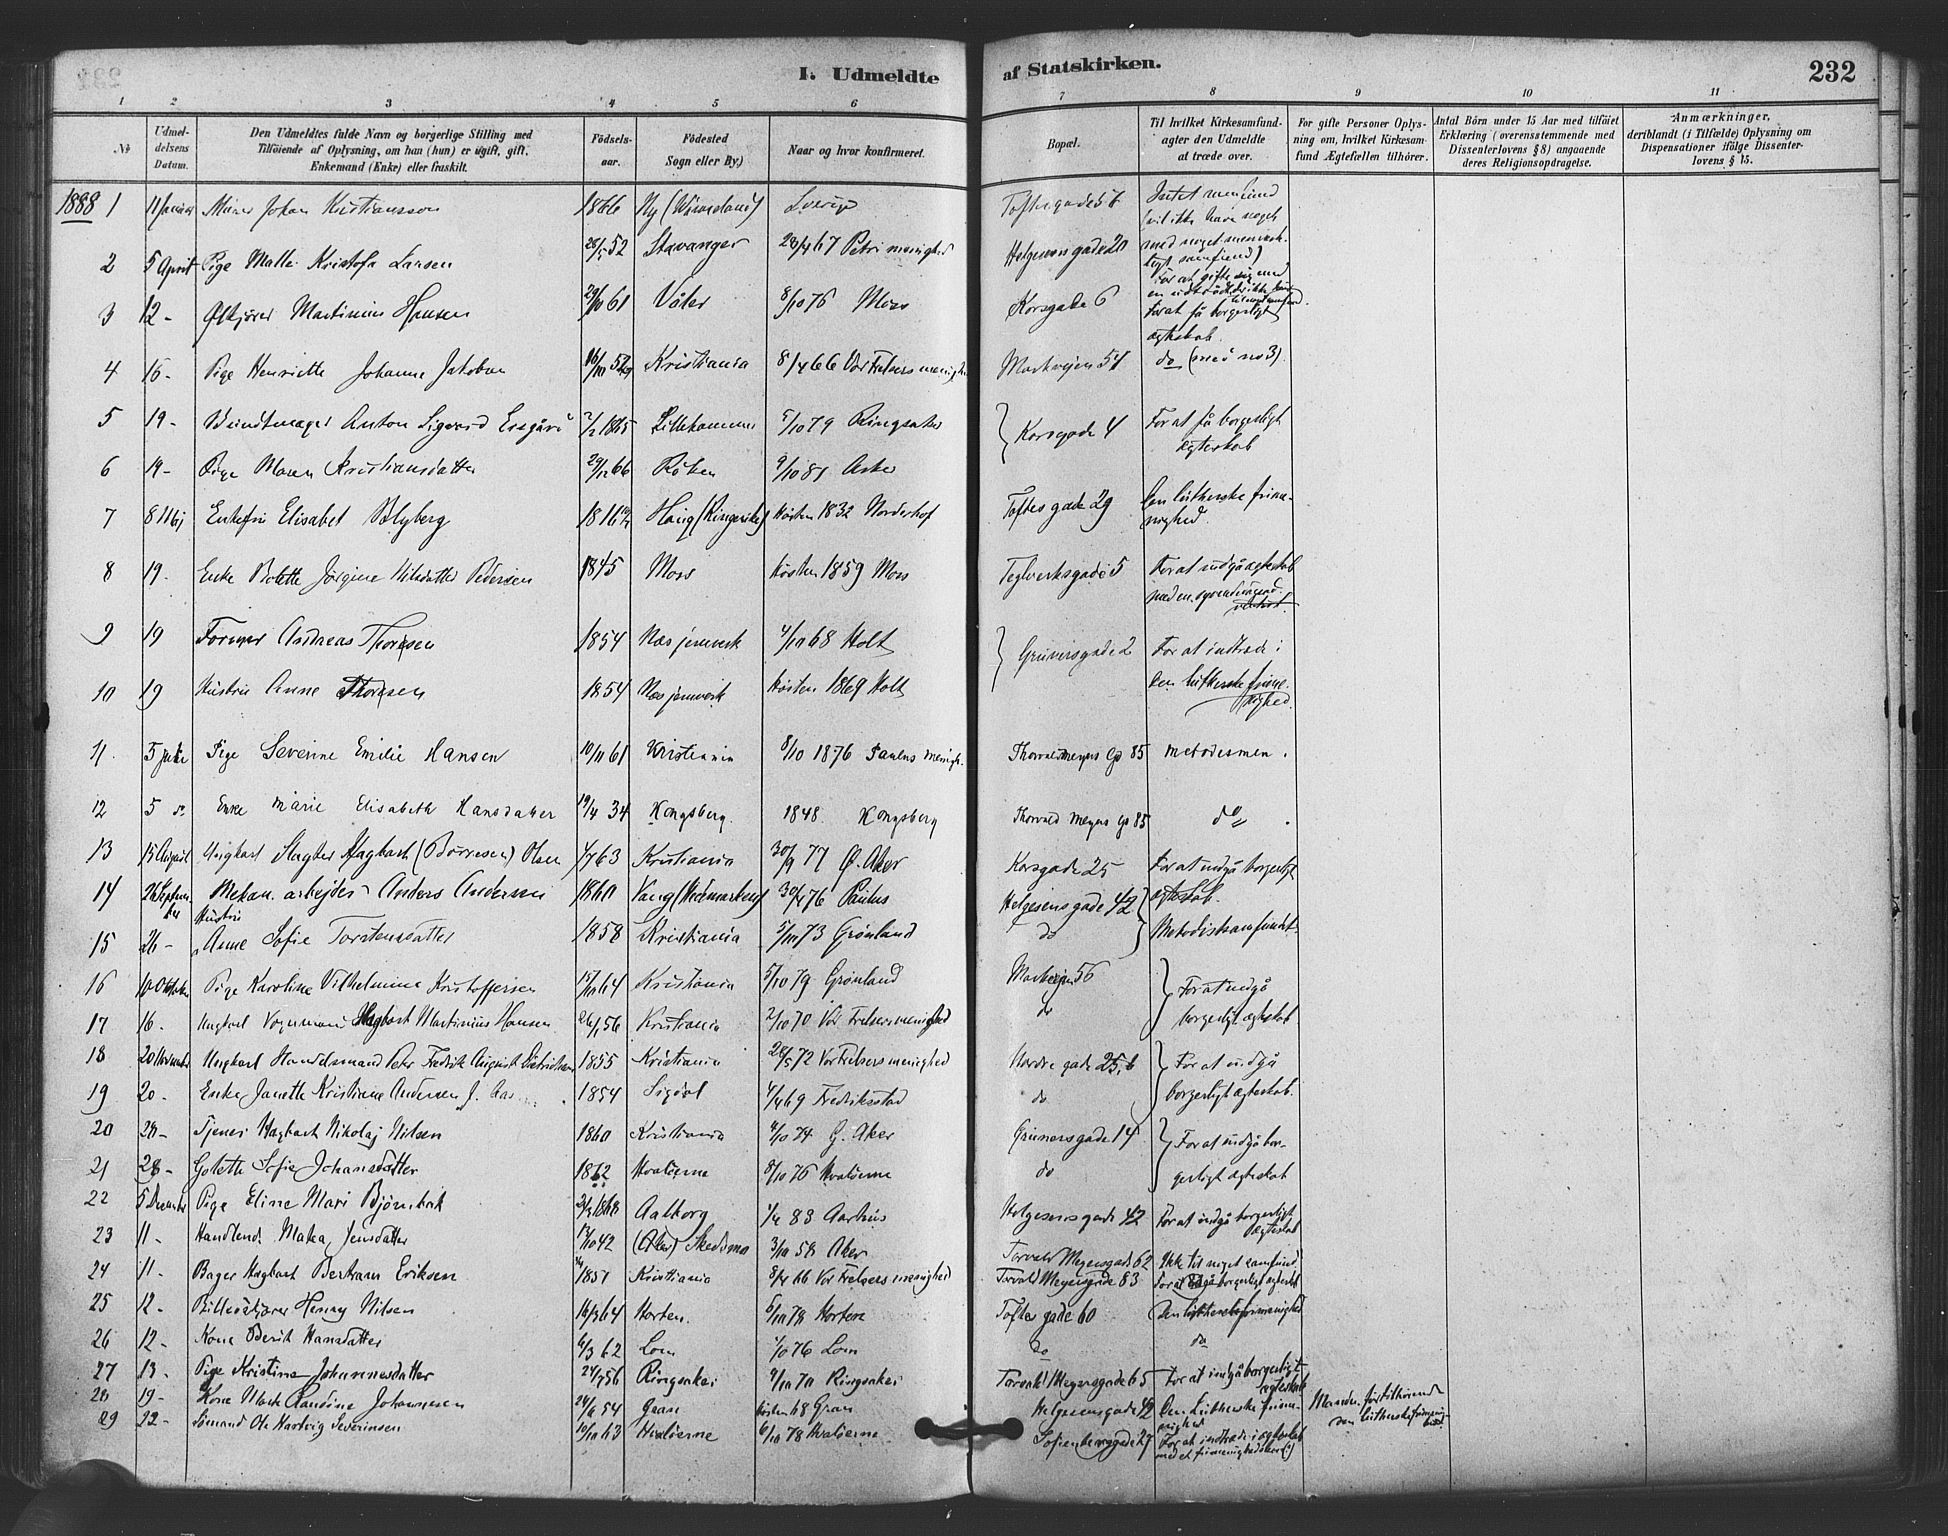 I. Udmeldte af Statskirken. 232
1 2 3 4 5 6 7 8 9 10 11
No
Udmeldelsens Datum.
Den Udmeldtes fulde Navn og borgerlige Stilling med
Tilføiende af Oplysning, om han (hun) er ugift, gift,
Enkemand (Enke) eller fraskilt.
Fødselsaar.
Fødested
Sogn eller By.)
Naar og hvor konfirmeret.
Bopæl.
Til hvilket Kirkesamfund-
agter den Udmeldte
at træde over.
For gifte Personer Oplys-
ning om, hvilket Kirkesam-
fund Ægtefællen tilhører.
Antal Børn under 15 Aar med tilføiet
Erklæring (overensstemmende med
Dissenterlovens § 8) angaaende
deres Religionsopdragelse.
Anmærkninger,
deriblandt (i Tilfælde) Oplysning om
Dispensationer ifølge Dissenter-
lovens § 15.
1888 1 11 Januar Murer Johan Kristiansson 1866 Ny (Wermeland) Sverige Toftesgade 56 Intet samfund
(vil ikke have noget
med noget menneske-
2 5 April Pige Malli Kristofa Larsen 28/5 52 Stavanger 28/4 67 Petri menighed Helgesens gade 20
For at gifte sig med
3 12 - Ølkjører Martinius Hansen 29/10 61 Våler 8/10 76 Moss Korsgade 6 For at få borgerligt
ægteskab.
4 16 - Pige Henriette Johanne Jakobsen Kristiania 8/4 66 Vor Frelsers menighed Markvejen 54 do (med no 3).
5 19 - Buntmager Anton Sigvard 1865 Lillehammer 5/10 79 Ringsaker Korsgade 4 For at få borgerligt
ægteskab
6 19 - Pige Maren Kristiansdatter 29/12 66 Røken 9/10 81 Asker
7 8 Maj Enkefru Elisabet Blyberg 1816 Houg (Ringerike) Høsten 1832 Norderhof Toftes gade 29 Den lutherske frime-
nighed.
8 19. Enke Bolette Jørgine Nilsdatter Pedersen 1845 Moss Høsten 1859 Moss Teglverksgade 5 For at indgå ægteskab
med en
9 19 Former Andreas Thoresen 1854 Næs jernverk 4/10 68 Holt Grünersgade 2 For at indtræde i
10 19 Hustru Anne Thoresen 1854 Næs jernverk Høsten 1869 Holt den lutherske frime-
nighed.
11. 5 Juli Pige Severine Emilie Hansen 10/11 61 Kristiania 8/10 1876 Paulus menigh. Thorvald Meyers G 85 metodismen.
12 5 do Enke Marie Elisabeth Hansdatter 19/4 34 Kongsberg. 1848 Kongsberg Thorvald Meyers G 85 do
13 15 August Ungkarl Slagter Hagbart (Børresen) Olsen 4/7 63 Kristiania 30/9 77 Ø. Aker Korsgade 25 For at indgå borgerligt
ægteskab.
14 26 September Mekan. arbejder Anders Andersen 1860 Vang (Hedemarken) 30/4 76 Paulus Helgesens gade 42
15 26 - Hustru Anne Sofie Torstensdatter 1858 Kristiania 5/10 73 Grønland do Metodistsamfundet.
16 10 Oktober Pige Karoline Vilhelmine Kristoffersen 15/10 64 Kristiania 5/10 79 Grønland Markvejen 56 For at indgå
17 16 - Ungkarl Vognmand Hagbart Martinius Hansen 26/1 56 Kristiania 2/10 70 Vor Frelsers menighed do borgerligt ægteskab
18 20 November Ungkarl Handelsmand Peter Fredrik August 1855 Kristiania 28/5 72 Vor Frelsers menighed Nordre gade 25, b For at indgå
19 20 - Enke Janette Kristiane Andersen f. 1854 Sigdal 4/4 69 Fredriksstad do borgerligt ægteskab.
20 28 - Tjener Hagbart Nikolaj Nilsen 1860 Kristiania 4/10 74 G. Aker Grünersgade 14 For at indgå bor-
21 28 - Golette Sofie Johansdatter 1862 Hvaløerne 8/10 76 Hvaløerne do gerligt ægteskab
22 5 December Pige Eline Mari 1868 Aalborg 1/4 83 Aarhus Helgesens gade 42 For at indgå borgerligt
ægteskab
23 11 - Handlend. Maka Jensdatter 13/10 42 (Aker) Skedsmo 3/10 58 Aker Torvald Meyersgade 62 Ikke til noget samfund.
24 11 - Bager Hagbart Bertram Eriksen 1851 Kristiania 8/4 66 Vor Frelsers menighed Torvald Meyersgade 83 For at indgå borgerligt ægteskab
25 12 - Henry Nilsen 16/3 64 Horten. 6/10 78 Horten Toftes gade 60 Den lutherske frimenighed
26 12 - Kone Berit Hansdatter 6/3 62 Lom 1/10 76 Lom do do
27 13. Pige Kristine Johannesdatter 24/7 56 Ringsaker 9/10 70 Ringsaker Torvald Meyersgade 65 For at indgå borgerligt
ægteskab
28 19 - Kone Randine Johannesen 54 Gran Høsten 68 Gran Helgesens gade 42 Den Lutherske frime-
nighed Manden før tilhørende
den lutherske frimenighed
29 22 - Sømand Ole Hartvig Severinsen 10/10 63 Hvaløerne 6/10 78 Hvaløerne Sofienberggade 27 For at indtræde i ægteskab
med et